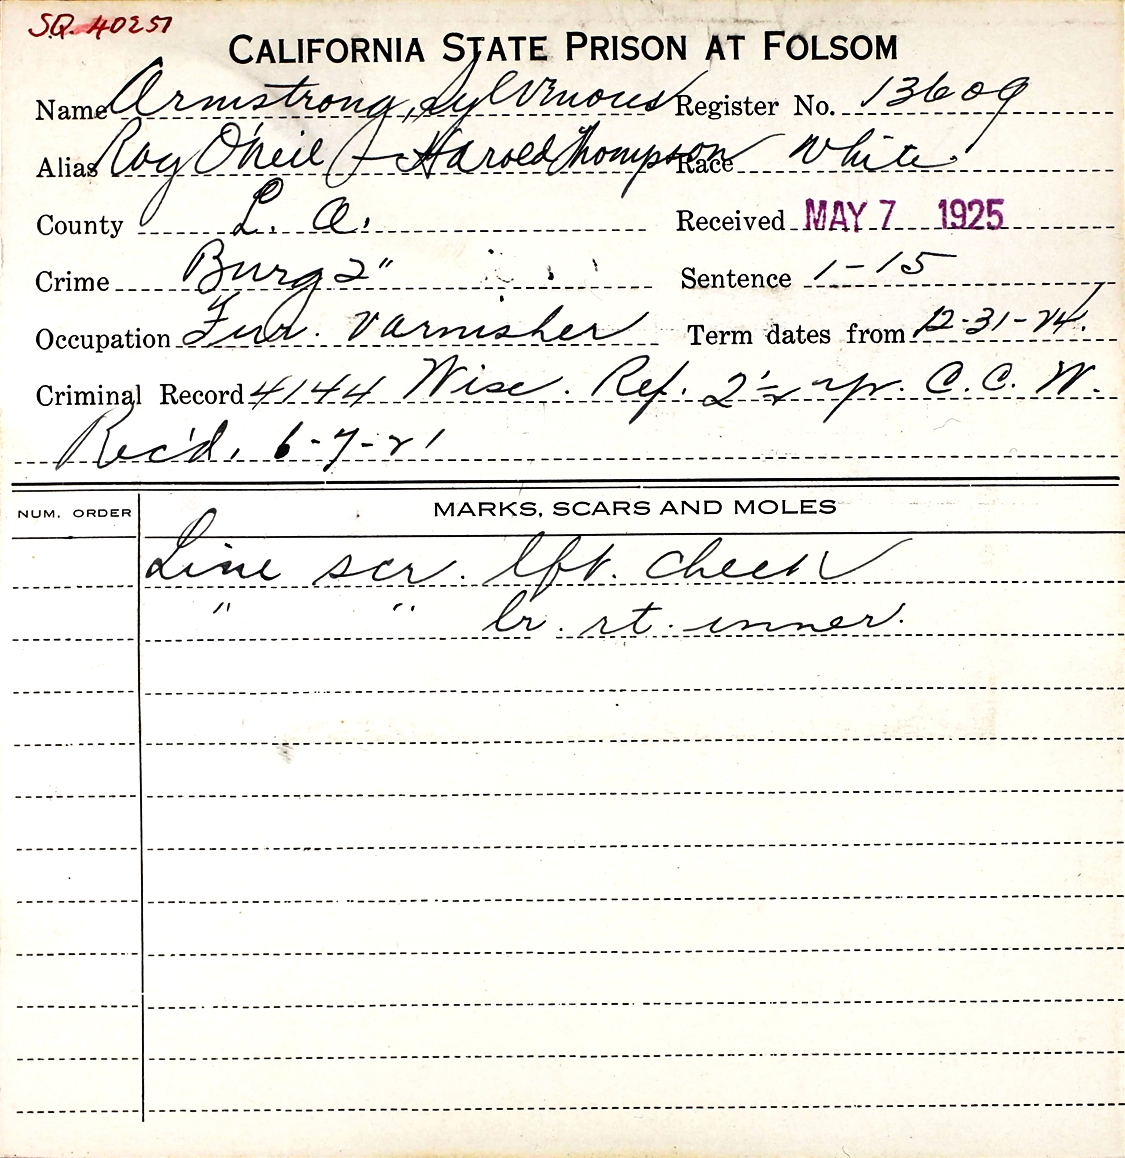 S.Q. 40251
CALIFORNIA STATE PRISON AT FOLSOM
Name Armstrong, Sylvenous Register No. 13609
Alias Roy O'neil - Harold Thompson Race White.
County L. A. Received MAY 7 1925
Crime Burg 2" Sentence 1-15
Occupation Fur. varnisher Term dates from 12-31-24.
Criminal Record 4144 Wisc. Ref. 2½ yr. C. C. W.
Rec'd. 6-7-21
NUM. ORDER MARKS, SCARS AND MOLES
Line scr. lft. cheek
" " lr. rt. inner.